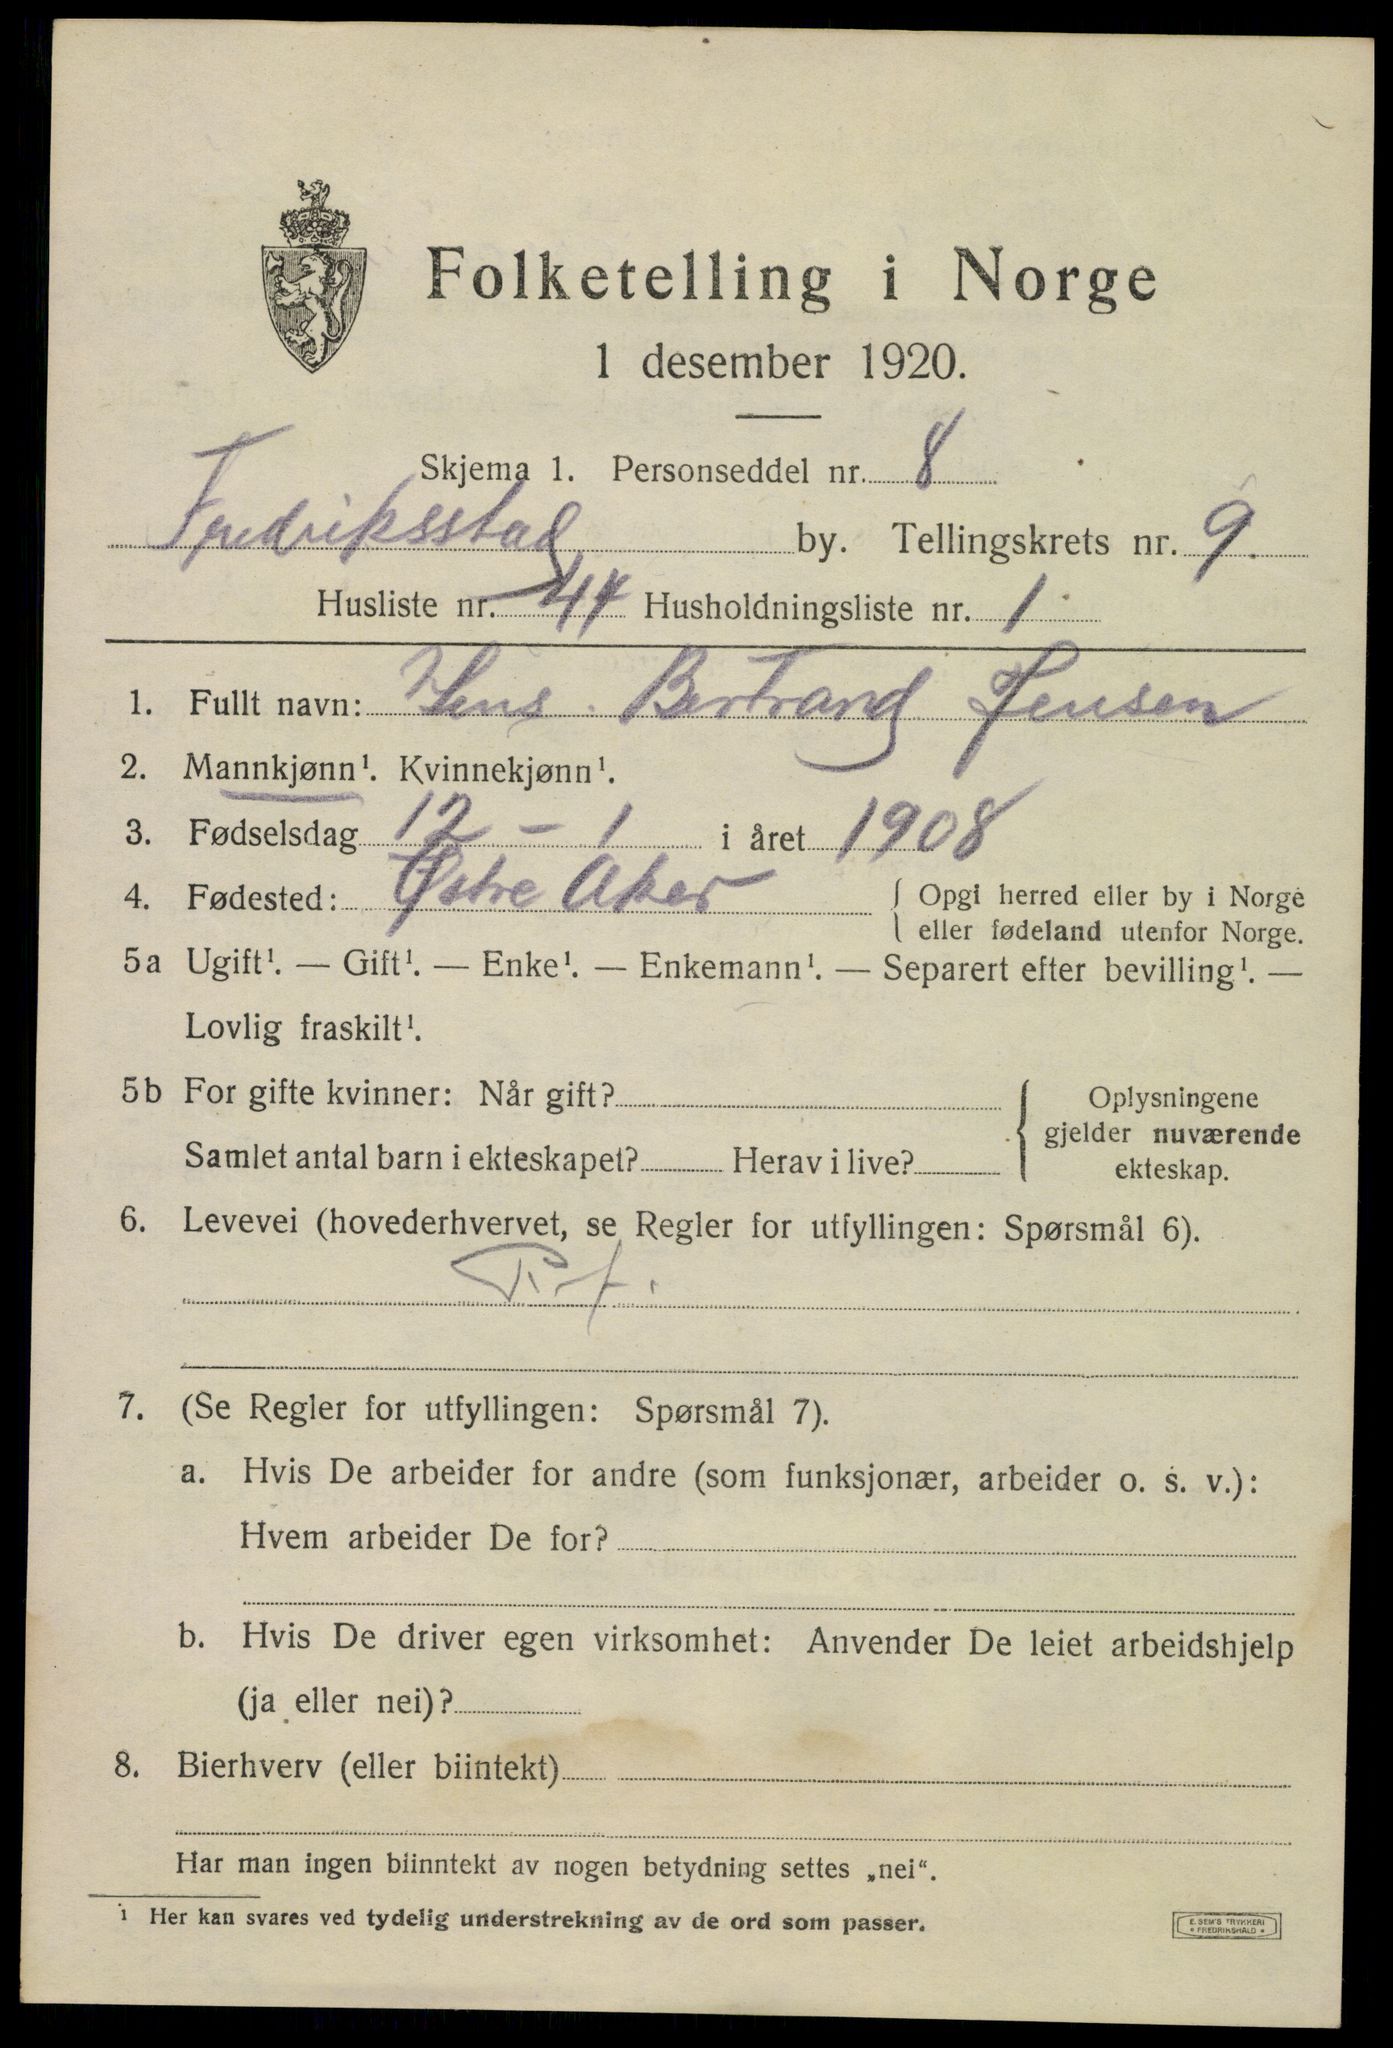 Folketelling i Norge
1 desember 1920.
Skjema 1. Personseddel nr. 8
Fredriksstad by. Tellingskrets nr. 9.
Husliste nr. 44 Husholdningsliste nr. 1
1. Fullt navn: Jens Bertrand Jensen
2. Mannkjønn¹. Kvinnekjønn¹.
3. Fødselsdag 12 - 1 i året 1908
4. Fødested: Østre Aker { Opgi herred eller by i Norge
{ eller fødeland utenfor Norge.
5a Ugift¹. — Gift¹. — Enke¹. — Enkemann¹. — Separert efter bevilling¹. —
Lovlig fraskilt¹.
5b For gifte kvinner: Når gift? Oplysningene
gjelder nuværende
Samlet antal barn i ekteskapet? Herav i live? ekteskap.
6. Levevei (hovederhvervet, se Regler for utfyllingen: Spørsmål 6).
7. (Se Regler for utfyllingen: Spørsmål 7).
a. Hvis De arbeider for andre (som funksjonær, arbeider o. s. v.):
Hvem arbeider De for?
b. Hvis De driver egen virksomhet: Anvender De leiet arbeidshjelp
(ja eller nei)?
8. Bierhverv (eller biintekt)
Har man ingen biinntekt av nogen betydning settes „nei“.
¹ Her kan svares ved tydelig understrekning av de ord som passer.
E. SEM'S TRYKKERI
* FREDRIKSHALD *